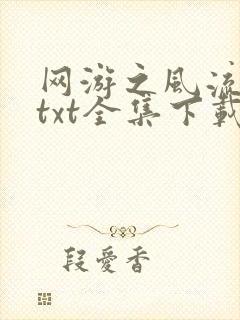 网游之风流
txt全集下载
段爱香